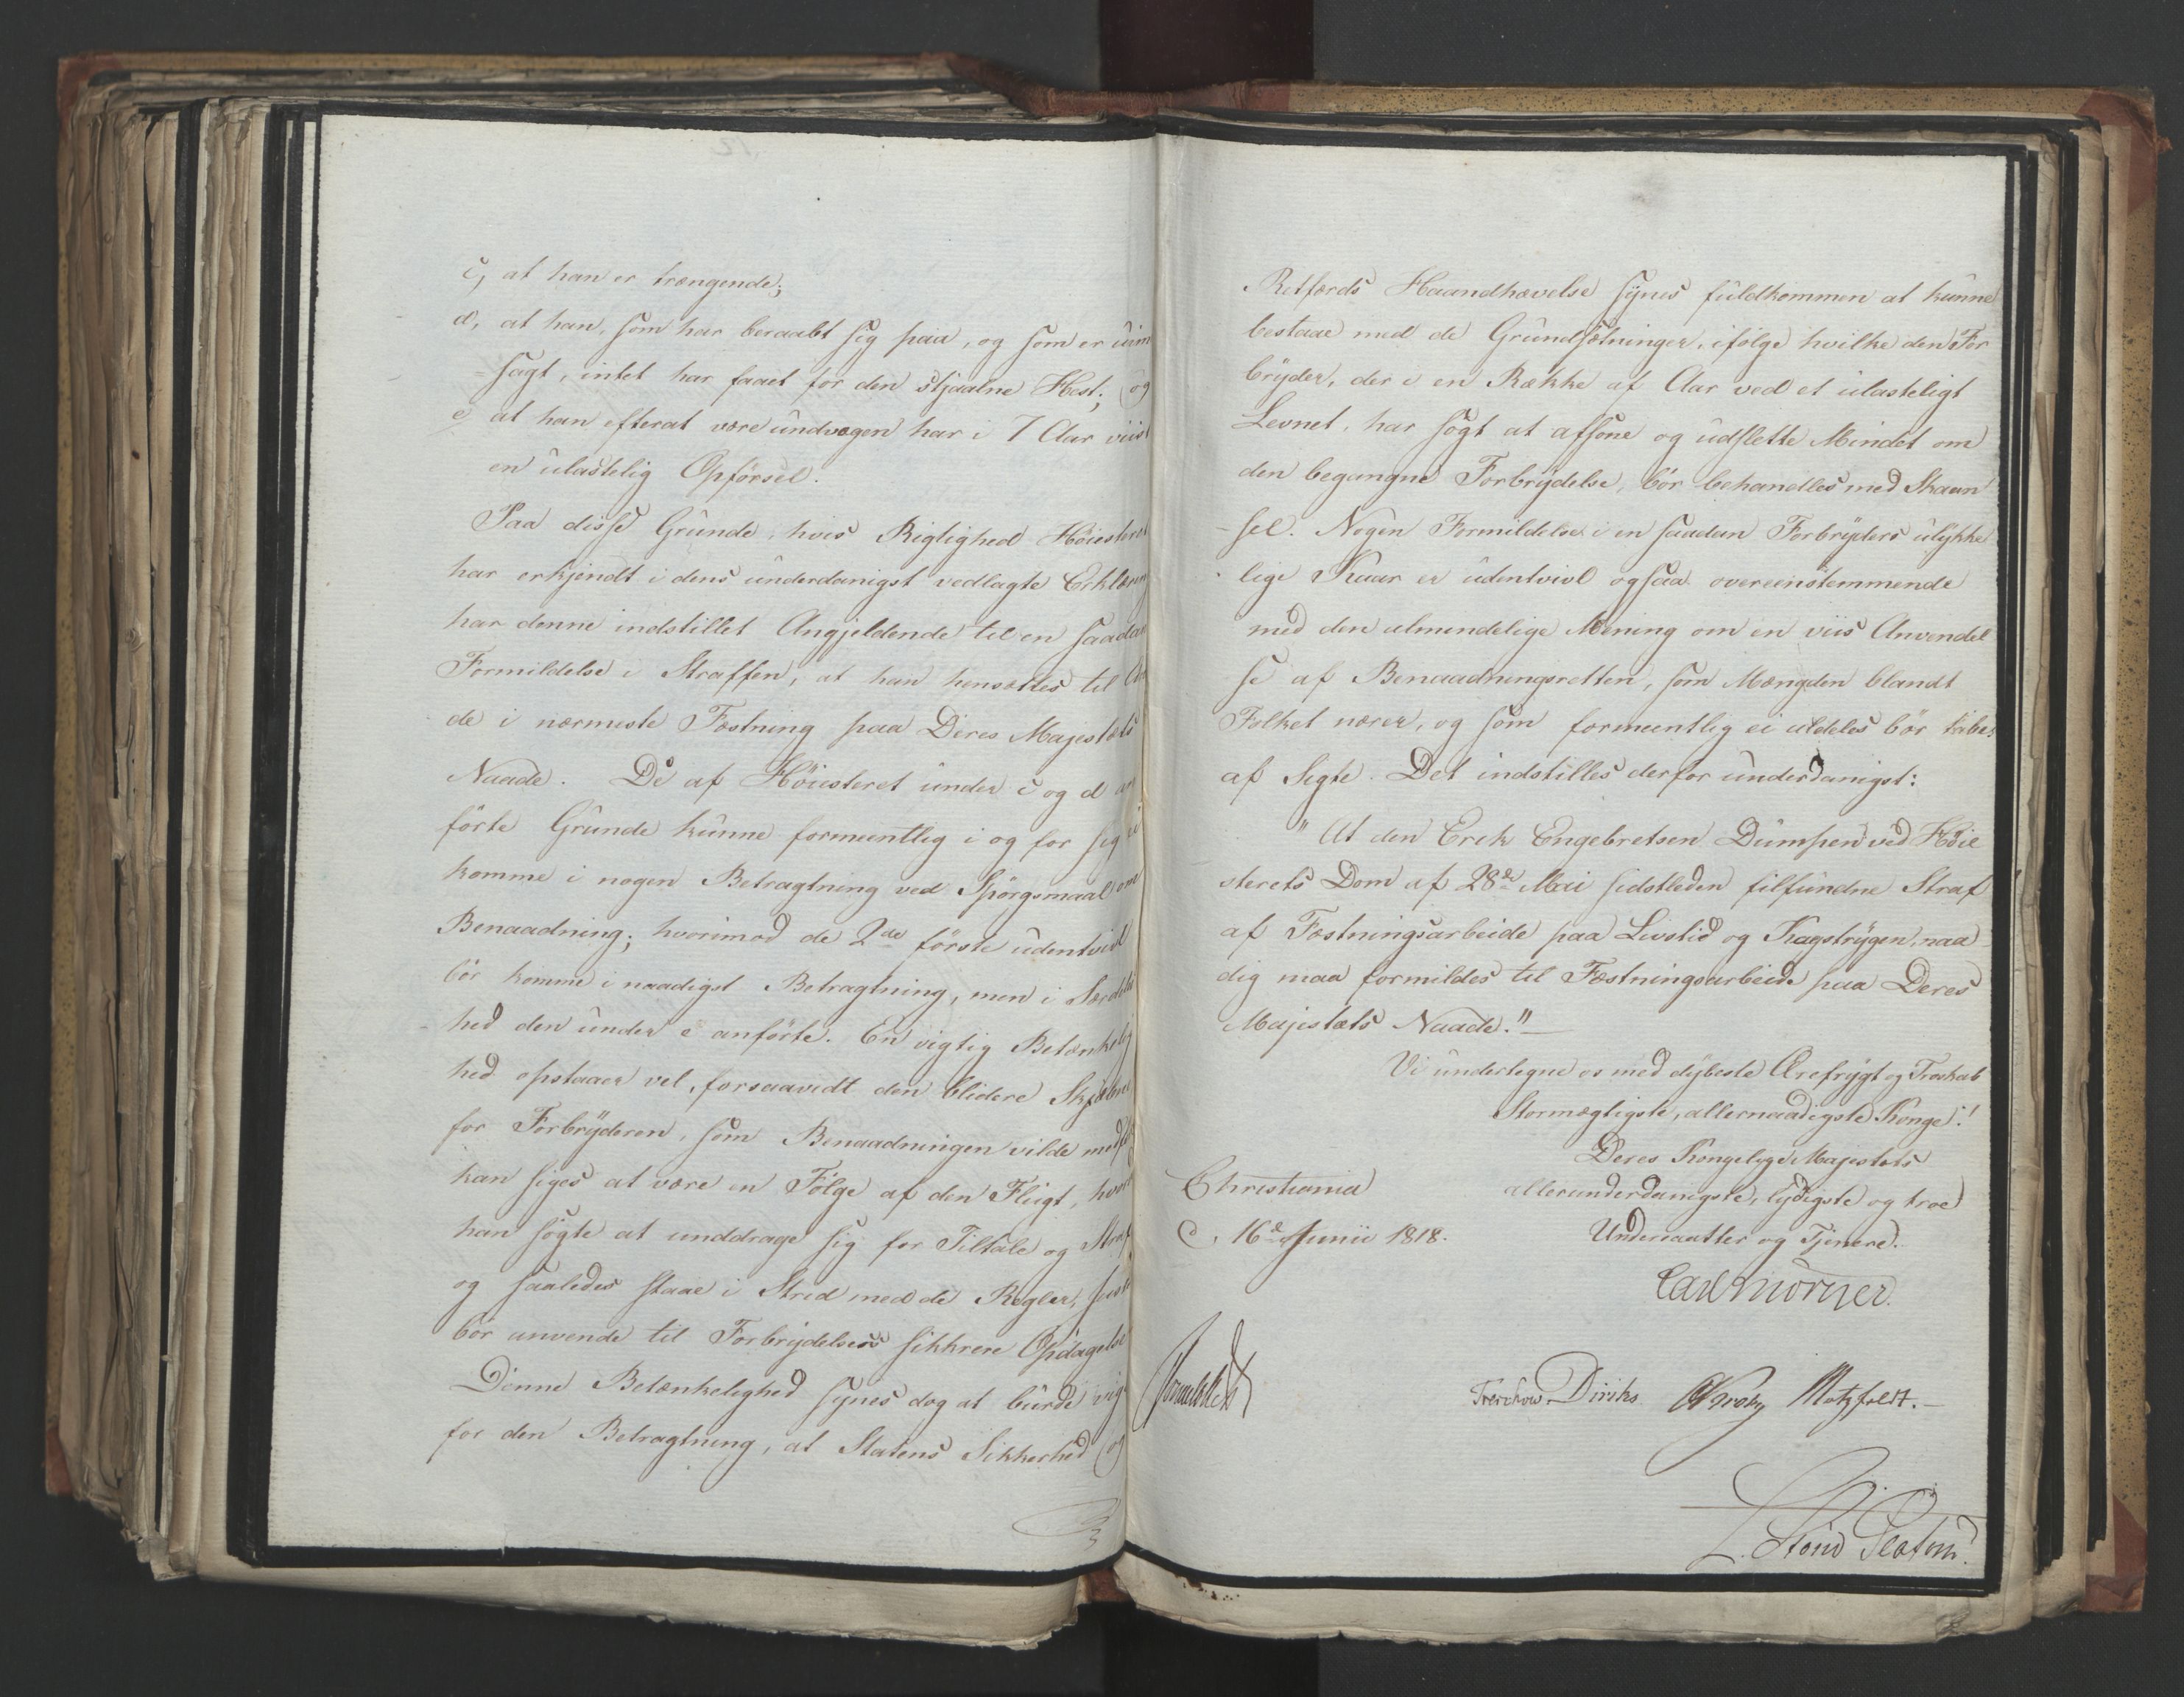 c, at han er trængende;
d, at han, som har beraabt sig paa, og som er uim
-sagt, intet har faaet for den stjaalne Hest; og
e, at han efterat være undvegen har i 7 Aar viist
en ulastelig Opførsel.
Paa disse Grunde, hvis Rigtighed Høiesteret
har erkjendt i dens underdanigst vedlagte Erklæring
har denne indstillet Angjeldende til en saadan
Formildelse i Straffen, at han hensættes til Ar
de i nærmeste Fæstning paa Deres Majestæts
Naade. De af Høiesteret under c og d an
førte Grunde kunne formeentlig i og for sig ei
komme i nogen Betragtning ved Spørgsmaal om
Benaadning; hvorimod de 2de første udentvivl
bør komme i naadigst Betragtning, men i Særdeles
hed den under e anførte. En vigtig Betænkelig
hed opstaaer vel, forsaavidt den blidere Skjæbne
for Forbryderen, som Benaadningen vilde medføre
kan siges at være en Følge af den Flugt, hvor
han søgte at unddrage sig for Tiltale og Straf
og saaledes staae i Strid med de Regler,
bør anvende til Forbrydelsers sikkrere Opdagelse
Denne Betænkelighed synes dog at burde vige
for den Betragtning, at Statens Sikkerhed og
Retfærds Haandhævelse synes fuldkommen at kunne
bestaae med de Grundsætninger, ifølge hvilke den For
bryder, der i en Række af Aar ved et ulasteligt
Levnet, har søgt at afsone og udslette Mindet om
den begangne Forbrydelse, bør behandles med Skaan
-sel. Nogen Formildelse i en saadan Forbryders ulykke
lige Kaar er udentvivl ogsaa overeenstemmende
med den almindelige Mening om en viis Anvendel
se af Benaadningsretten, som Mængden blandt
Folket nærer, og som formeentlig ei aldeles bør tabes
af Sigte. Det indstilles derfor underdanigst:
"At den Erik Engebretsen Dumpen ved Høie
sterets Dom af 28de Mai sidstleden tilfundne Straf
af Fæstningsarbeide paa Livstid og Kagstrygen, naa
dig maa formildes til Fæstningsarbeide paa Deres
Majestæts Naade."
Vi undertegne os med dybeste Ærefrygt og Troskab
Stormægtigste, allernaadigste Konge!
Deres Kongelige Majestæts
allerunderdanigste, lydigste og troe
Undersaatter og Tjenere.
Christiania
d. 16de Junii 1818.
Carl Mörner.
Sommerhielm
Treschow. Diriks Krog Motzfeldt.
L. Stoud Platou.